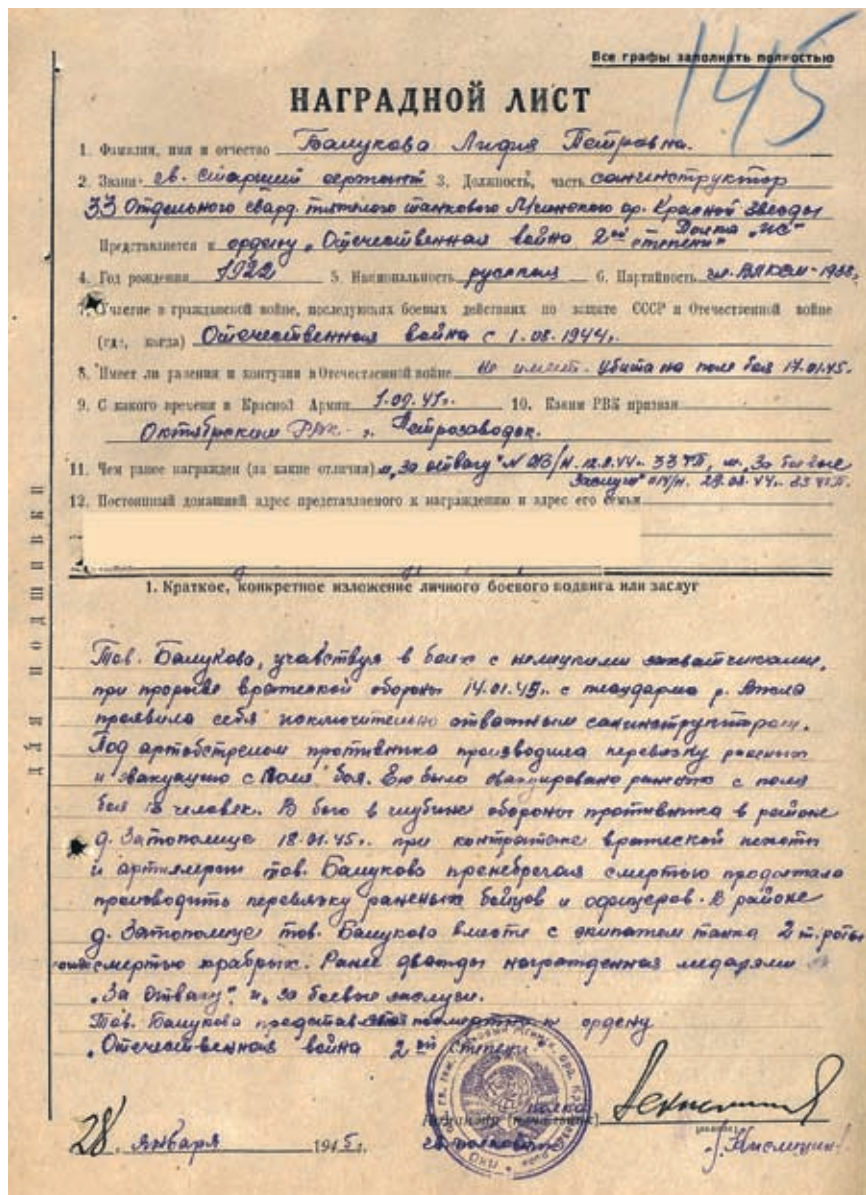 145
Все графы заполнять полностью
НАГРАДНОЙ ЛИСТ
1. Фамилия, имя и отчество Балукова Лидия Петровна.
2. Звание гв. старший сержант 3. Должность, часть санинструктор
33 Отдельного гвард. тяжелого танкового Мгинского ор. Красной Звезды полка "ИС"
Представляется к ордену "Отечественная война 2ой степени"
4. Год рождения 1922 5. Национальность русская 6. Партийность чл. ВЛКСМ-1938г
7. Участие в гражданской войне, последующих боевых действиях по защите СССР и Отечественной войне
(где, когда) Отечественная война с 1.08.1944г.
8. Имеет ли ранения и контузии в Отечественной войне Не имеет. Убита на поле боя 17.01.45г.
9. С какого времени в Красной Армии 1.09.41г. 10. Каким РВК призван
Октябрьским РВК г. Петрозаводск.
11. Чем ранее награжден (за какие отличия) м. "За отвагу" 33 ТП, м. "За боевые
заслуги" 33 ТП.
12. Постоянный домашний адрес представляемого к награждению и адрес его семьи
для подшивки
1. Краткое, конкретное изложение личного боевого подвига или заслуг
Тов. Балукова, учавствуя в боях с немецкими захватчиками,
при прорыве вражеской обороны 14.01.45г. с плацдарма р. Висла
проявила себя исключительно отважным санинструктором.
Под артобстрелом противника производила перевязку раненых
и эвакуацию с поля боя. Ею было эвакуировано раненых с поля
боя человек. В бою в глубине обороны противника в районе
д. Затополице 18.01.45г. при контратаке вражеской пехоты
и артиллерии тов. Балукова пренебрегая смертью продолжала
производить перевязку раненых бойцов и офицеров. В районе
д. Затополице тов. Балукова вместе с экипажем танка 2 т. роты
смертью храбрых. Ранее дважды награжденная медалями
"За Отвагу" и "за боевые заслуги.
Тов. Балукова представляется посмертно к ордену
"Отечественная война 2ой степени"
полка
Командир (начальник)
гв. полковник
28 января 1945г.